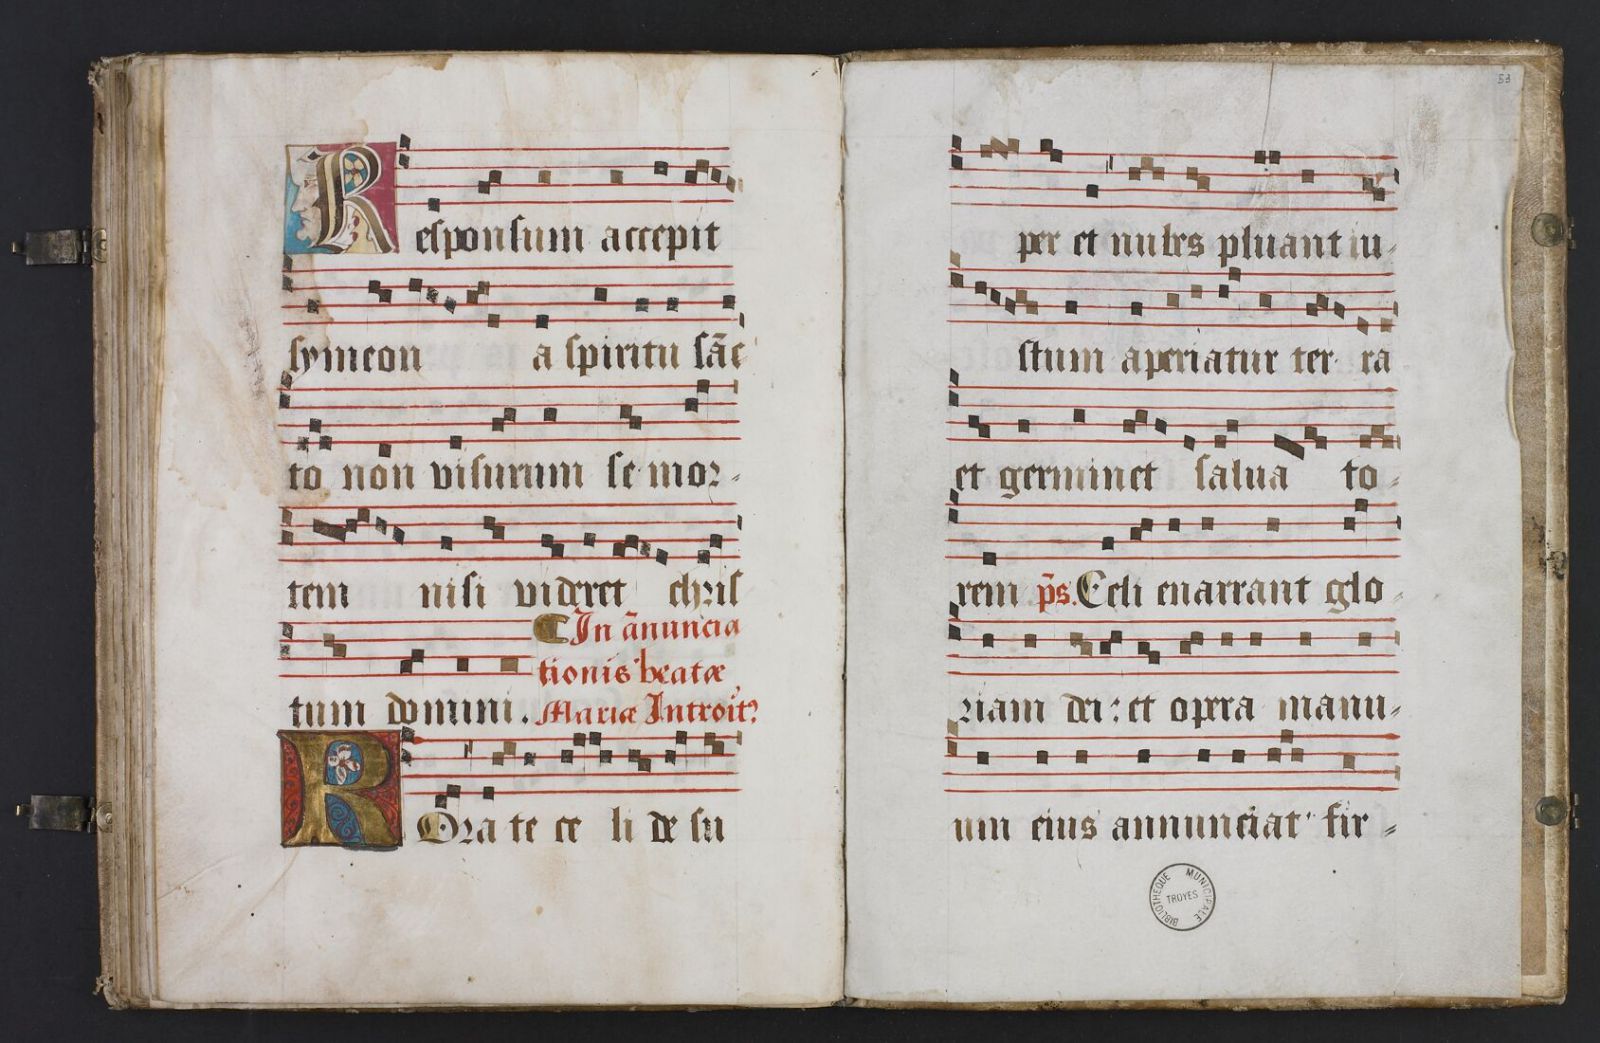 Responsum accepit
symeon a spiritu sãc
to non visurum se mor-
tem nisi videret chris
tum domini.
In ãnuncia
tionis beatæ
Mariæ Introit9
ROrate ce li de su
53
per et nubes pluant iu-
stum aperiatur ter ra
et germinet salua to-
rem p̃s. Celi enarrant glo-
riam dei: et opera manu-
um eius annunciat fir-
BIBLIOTHEQUE MUNICIPALE
TROYES